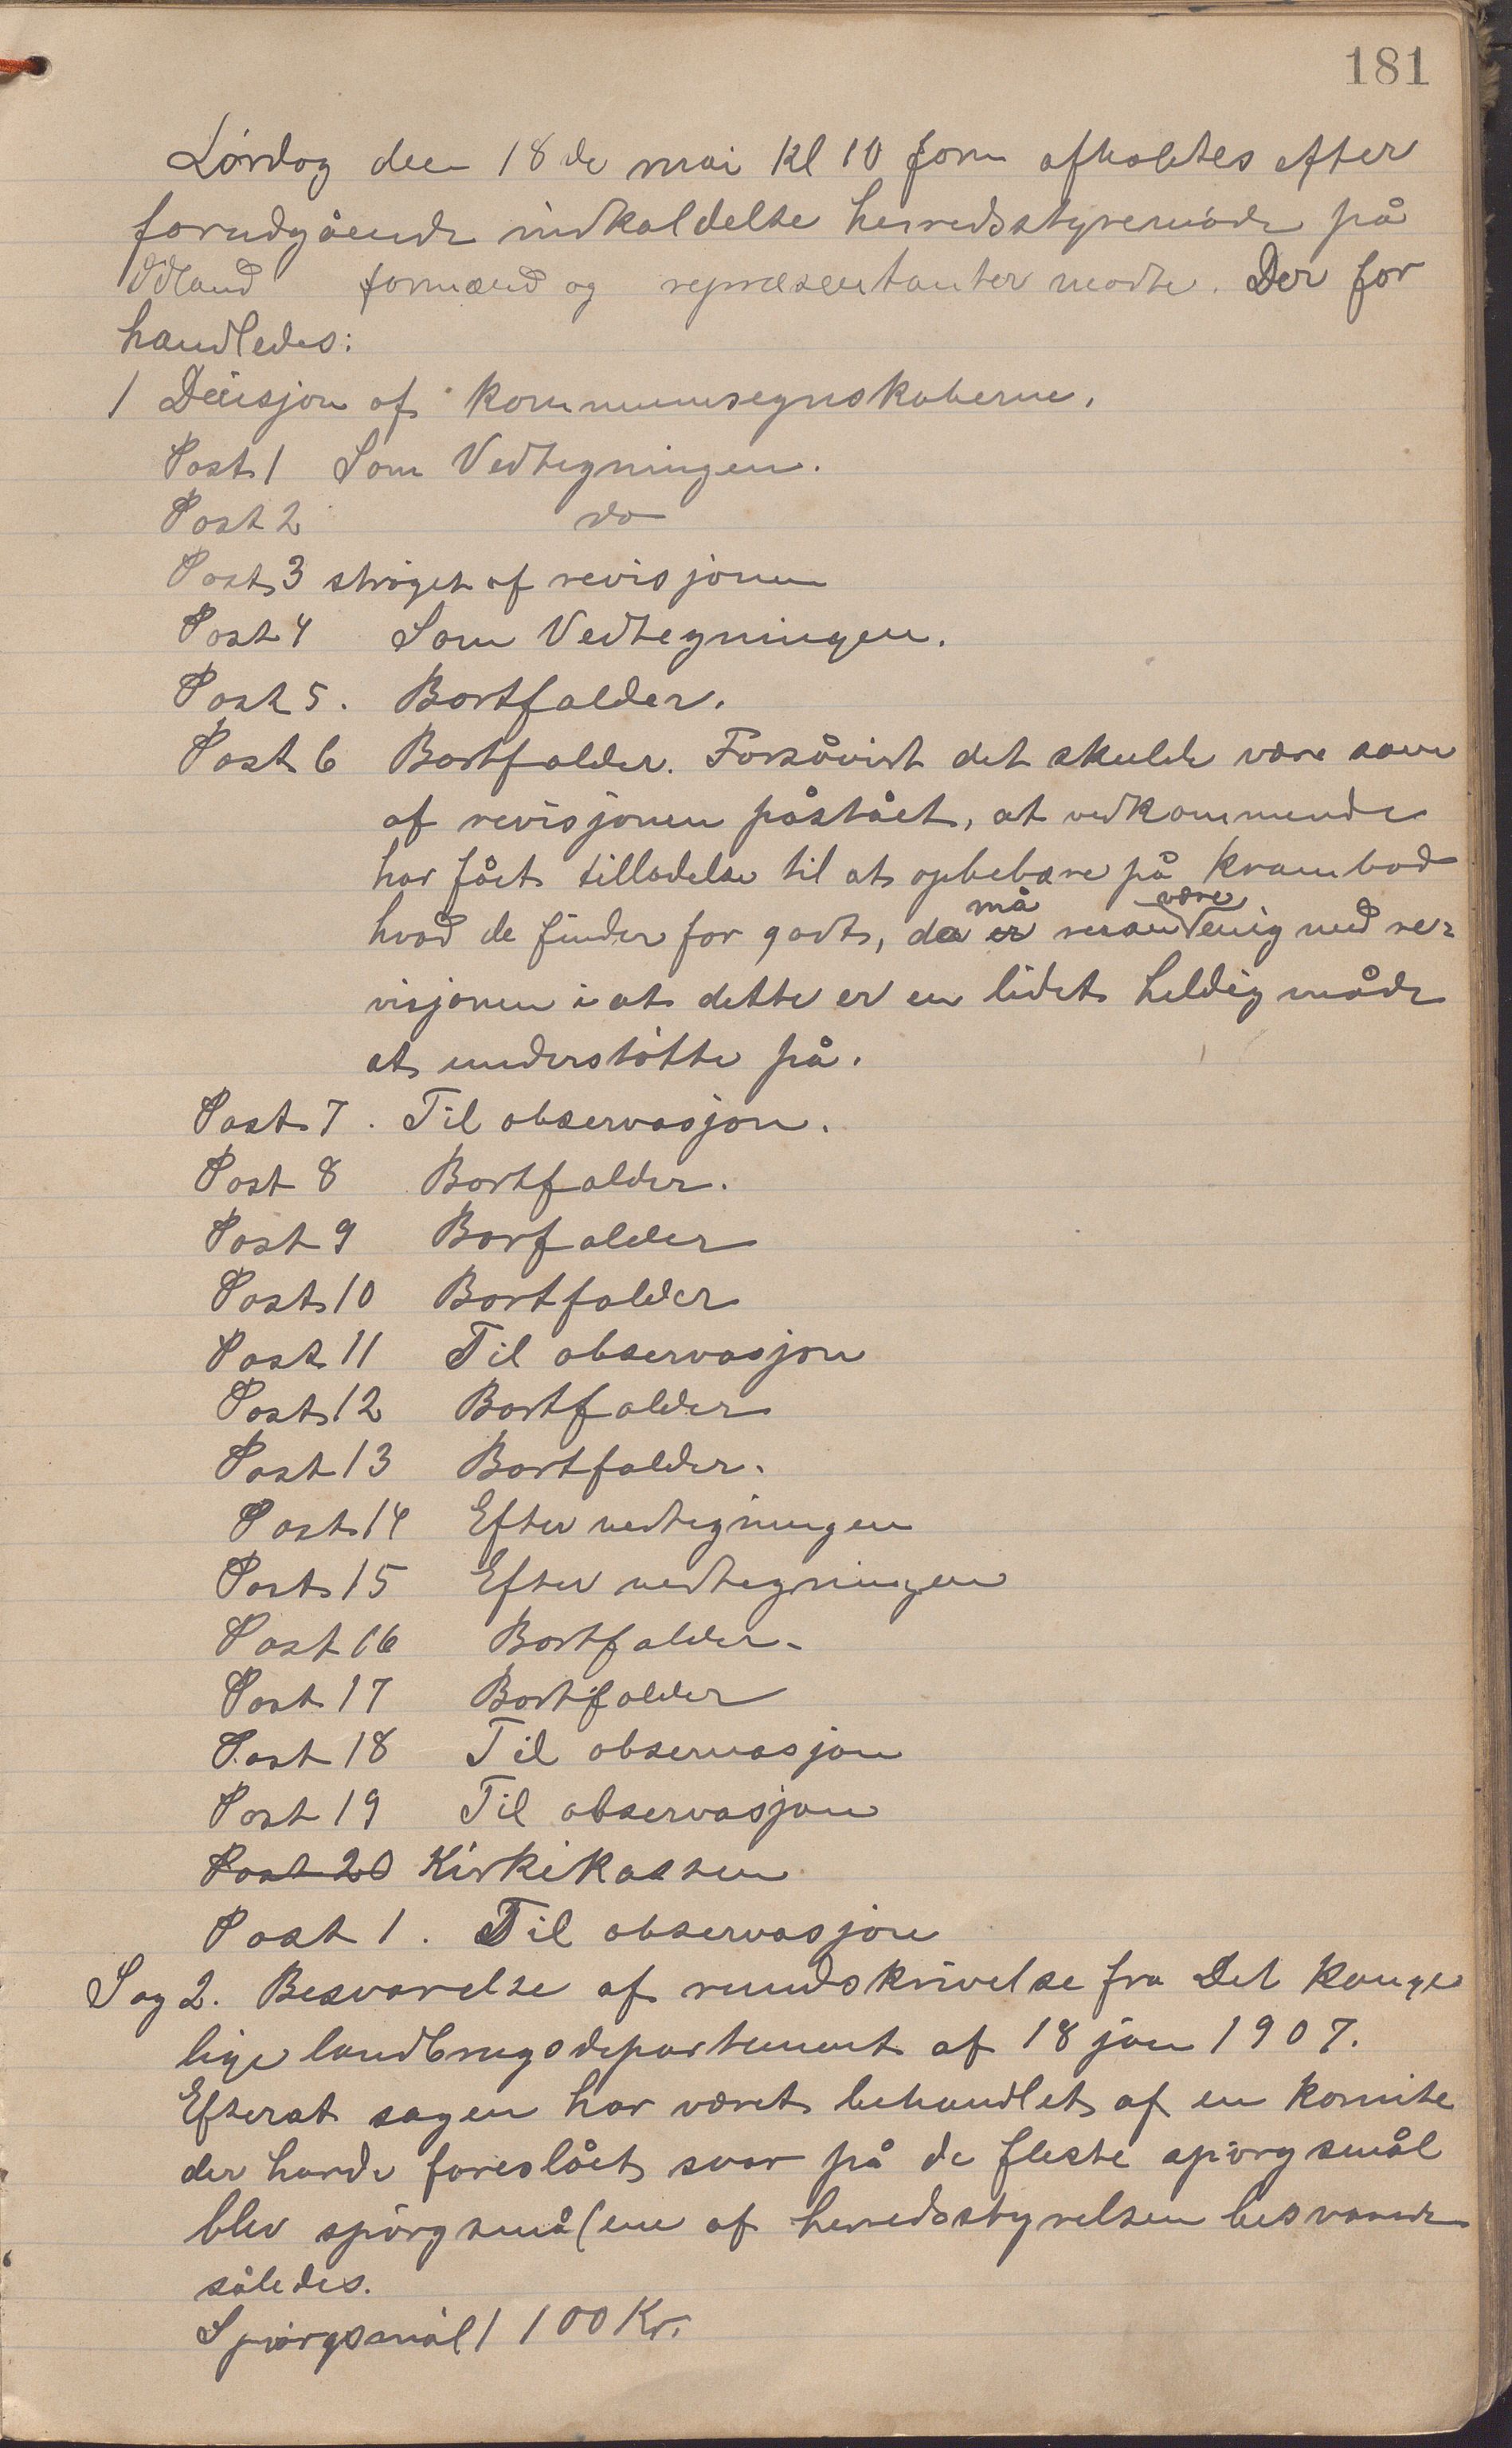 181
Lørdag den 18de mai kl 10 form afholdtes efter
forudgående indkaldelse herredsstyremøde på
Ødland formænd og repræsentanter mødte. Der for
handledes:
1 Desisjon af kommuneregnskaberne.
Post 1 Som Vedtegningen.
Post 2 do
Post 3 strøget af revisjonen
Post 4 Som Vedtegningen.
Post 5. Bortfalder.
Post 6 Bortfalder. Forsåvidt det skulde være som
af revisjonen påstået, at vedkommende
har fået tilladelse til at opbebære på krambod
hvad de finder for godt, da er må man være enig med re-
visjonen i at dette er en lidet heldig måde
at understøtte på.
Post 7. Til observasjon.
Post 8 Bortfalder.
Post 9 Borfalder
Post 10 Bortfalder
Post 11 Til observasjon
Post 12 Bortfalder
Post 13 Bortfalder.
Post 14 Efter vedtegningen
Post 15 Efter vedtegningen
Post 16 Bortfalder.
Post 17 Bortfalder
Post 18 Til observasjon
Post 19 Til observasjon
Post 20 Kirkekassen
Post 1. Til observasjon
Sag 2. Besvarelse af rundskrivelse fra Det konge
lige landbrugsdepartement af 18 jan 1907.
Efterat sagen har været behandlet af en komite
der havde foreslået svar på de fleste spørgsmål
blev spørgsmålene af herredsstyrelsen besvarede
således.
Spørgsmål 1 100 Kr.